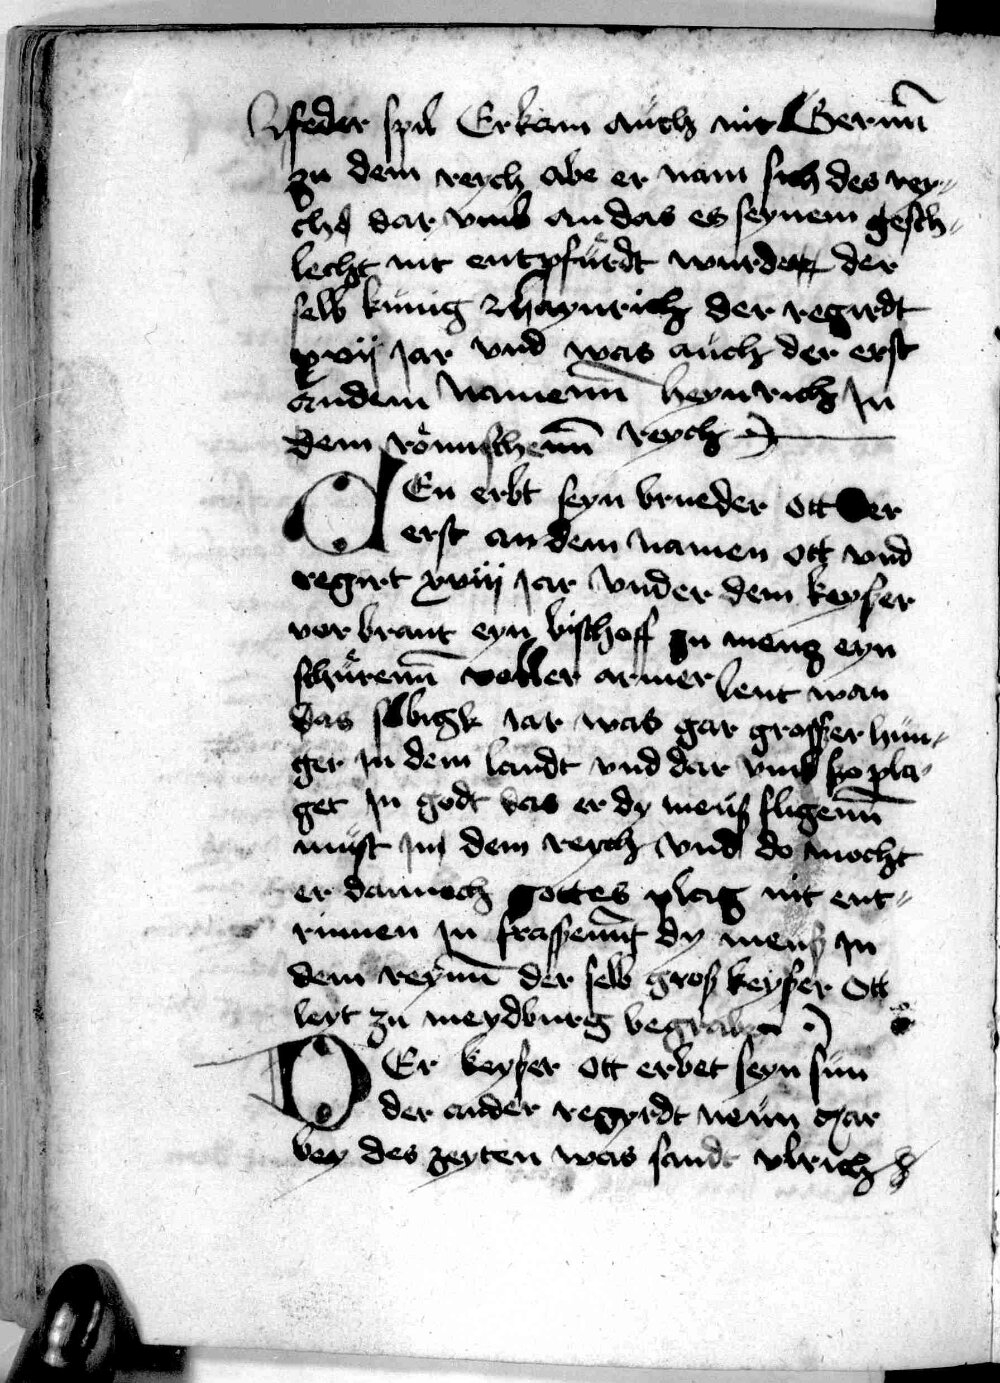 feder spil Er kam auch nit gerinn
zu dem reych abe er nam sich des rey-
chs dar vmb an das es seynem gesch-
lecht nit entpfürdt wurde der
selb kunig Haynrich der regirdt
xvij Jar vnd was auch der erst
an dem namenn heynrich In
dem römischenn reych
En erbt seyn brueder ott der
erst an dem namen ott vnd
regirt xxviij Jar vnder dem keyser
vorbrant eyn bischoff zu menz eyn
schürenn voller armer leut wan
das selbigk iar was gar grosser hun-
ger In dem landt vnd dar vmb so pla-
get In godt das er dy meuß fligenn
must Im dem reych vnd do mocht
er dannoch gottes plag nit ent-
rinnen In frassennt dy meuß In
dem reynn der selb groß keyser Ott
leyt zu meydburg begraben
DEr keyser ott erbet seyn sun
der ander regyrdt neun Jar
bey des zeyten was sandt vlrich